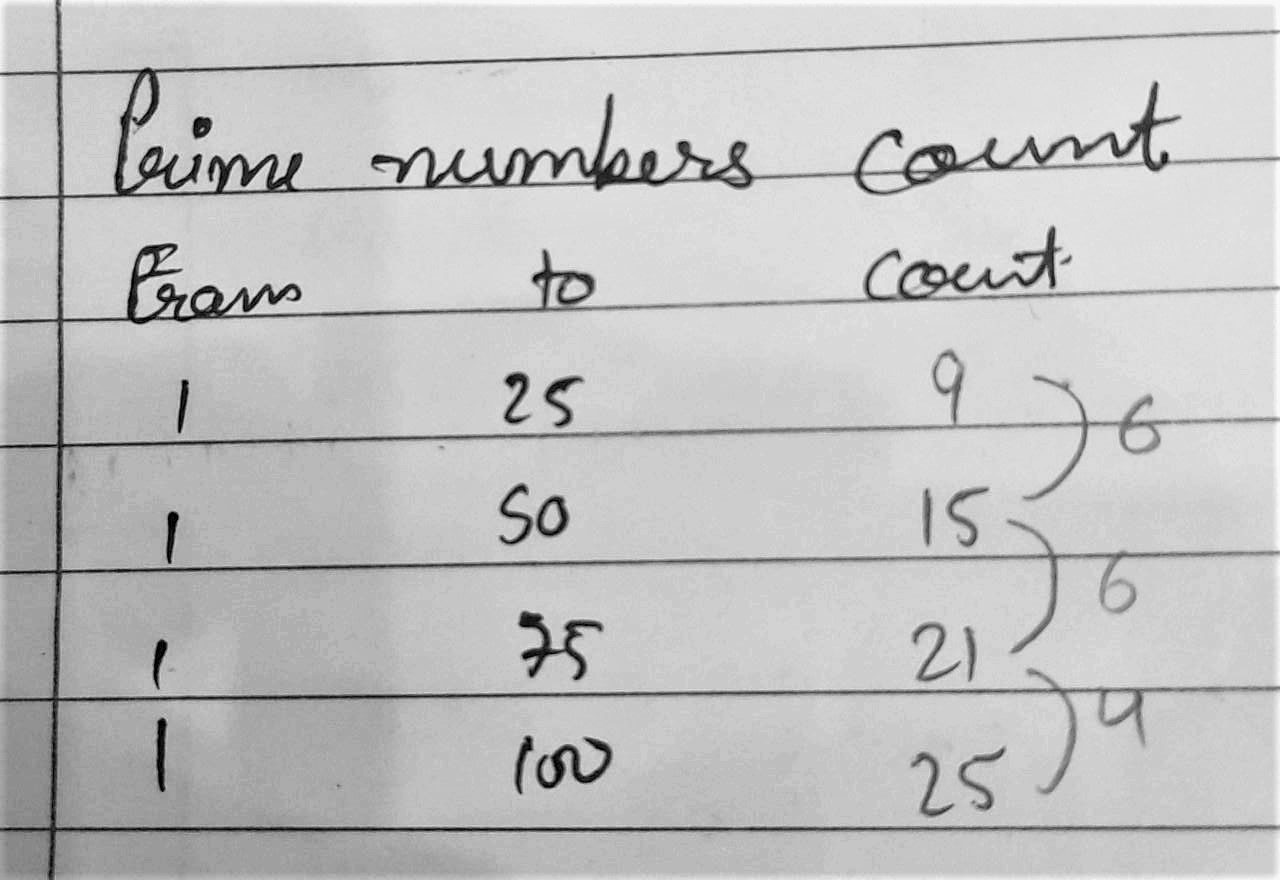 Prime numbers count
From to count
1 25 9
6
1 50 15
6
1 75 21
4
1 100 25